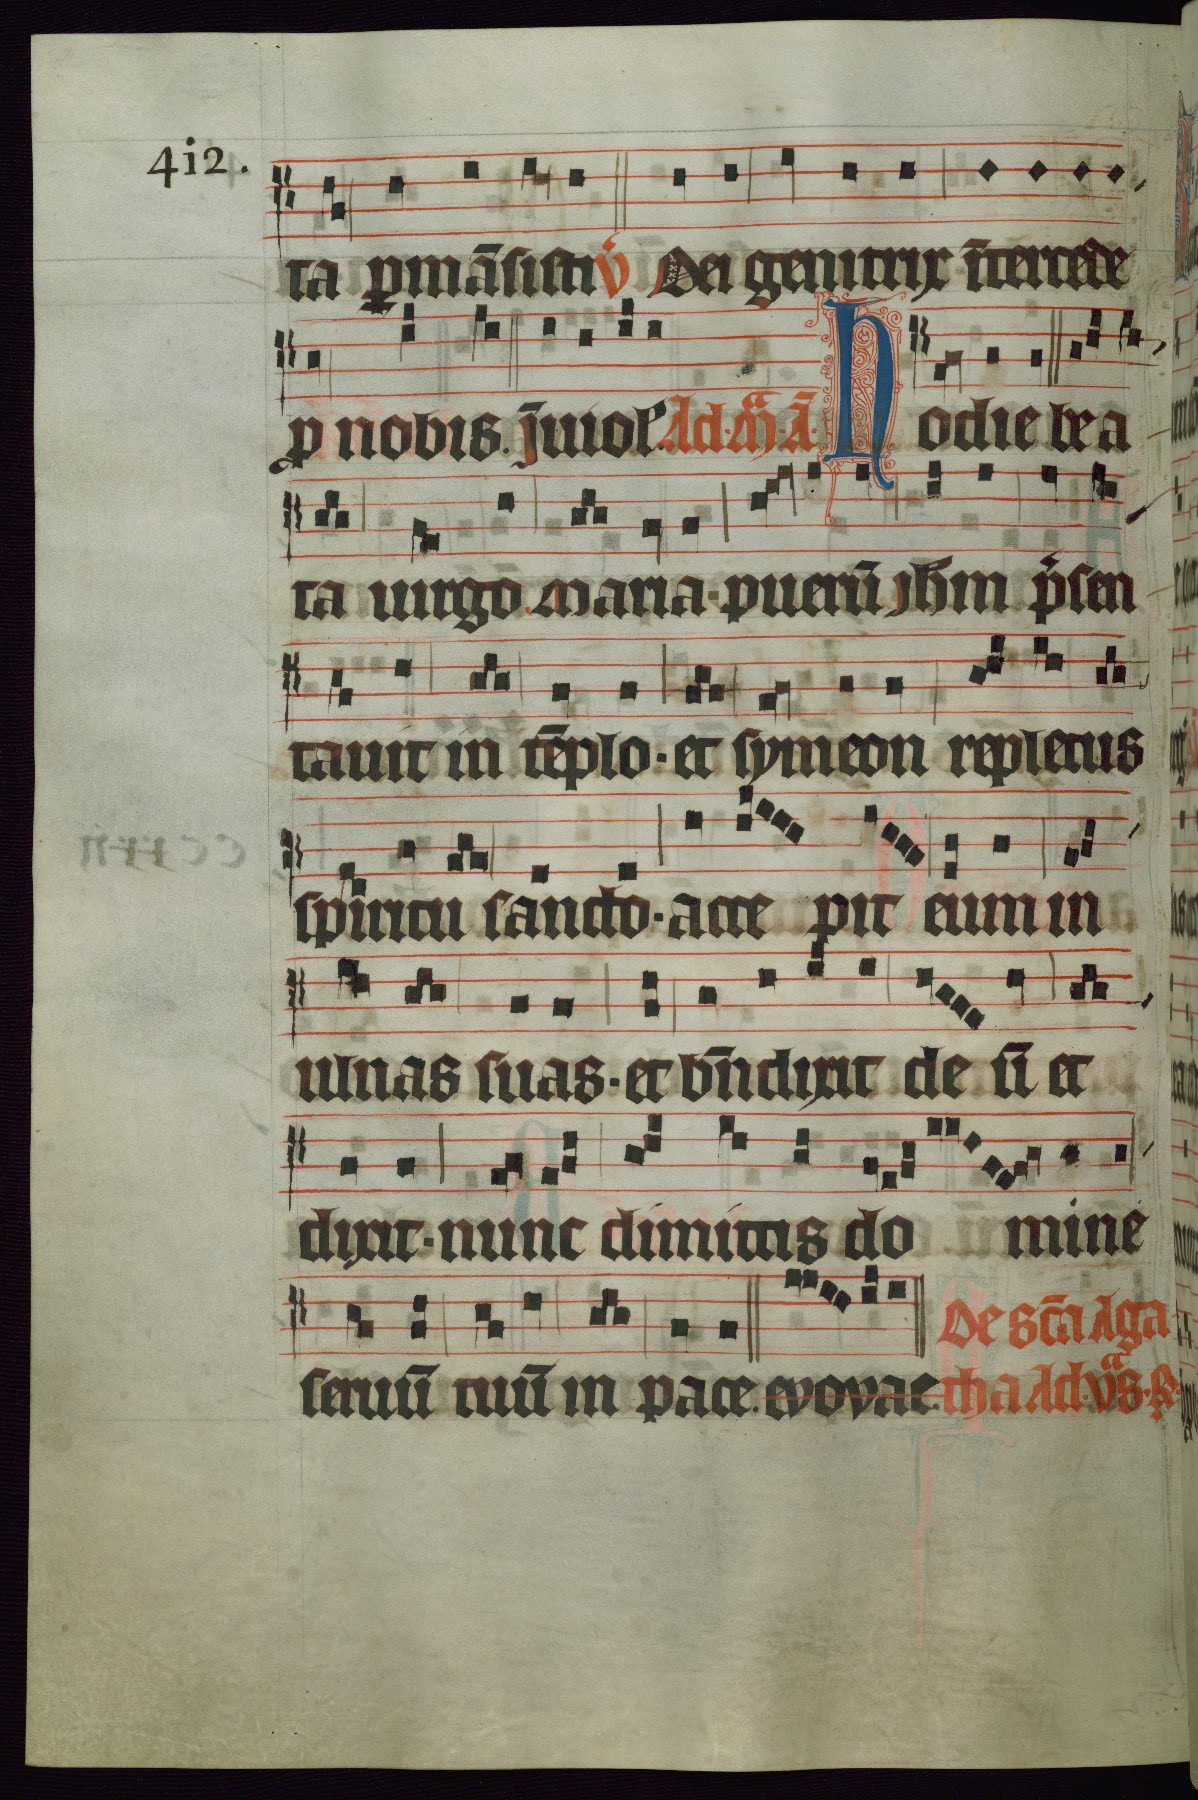 4i2.
ta ꝑmāsisti v̄ Dei genitrix īntercede
ꝓ nobis. Jnuiol Ad. M̄. ā. Hodie bea
ta uirgo maria · puerū Jhm p̄sen
tauit in tēplo · et symeon repletus
spiritu sancto · acce pit eum in
ulnas suas · et bn̄dixit deū et
dixit · nunc dimittis do mine
De sc̄a Aga
seruū tuū in pace. evovae. tha Ad. v̄s. ℟.